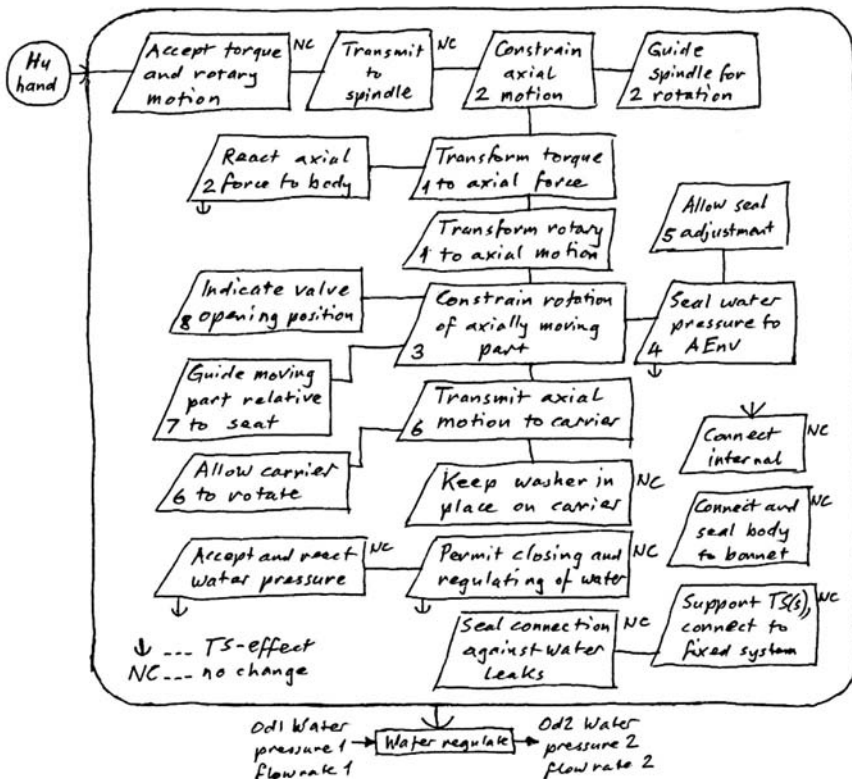 Hu
hand
Accept torque
and rotary
motion
NC
Transmit
to
spindle
NC
Constrain
axial
2 motion
Guide
spindle for
2 rotation
React axial
2 force to body
Transform torque
1 to axial force
Allow seal
5 adjustment
Transform rotary
1 to axial motion
Indicate valve
8 opening position
Constrain rotation
of axially moving
3 part
Seal water
pressure to
4 AEnv
Guide moving
part relative
7 to seat
Transmit axial
6 motion to carrier
Connect
internal
NC
Allow carrier
6 to rotate
Keep washer in
place on carrier
NC
Connect and
seal body
to bonnet
NC
Accept and react
water pressure
NC
Permit closing and
regulating of water
NC
Support TS(s),
connect to
fixed system
NC
Seal connection
against water
leaks
NC
↓ --- TS-effect
NC --- no change
Od1 Water
pressure 1
flow rate 1
Water regulate
Od2 Water
pressure 2
flow rate 2